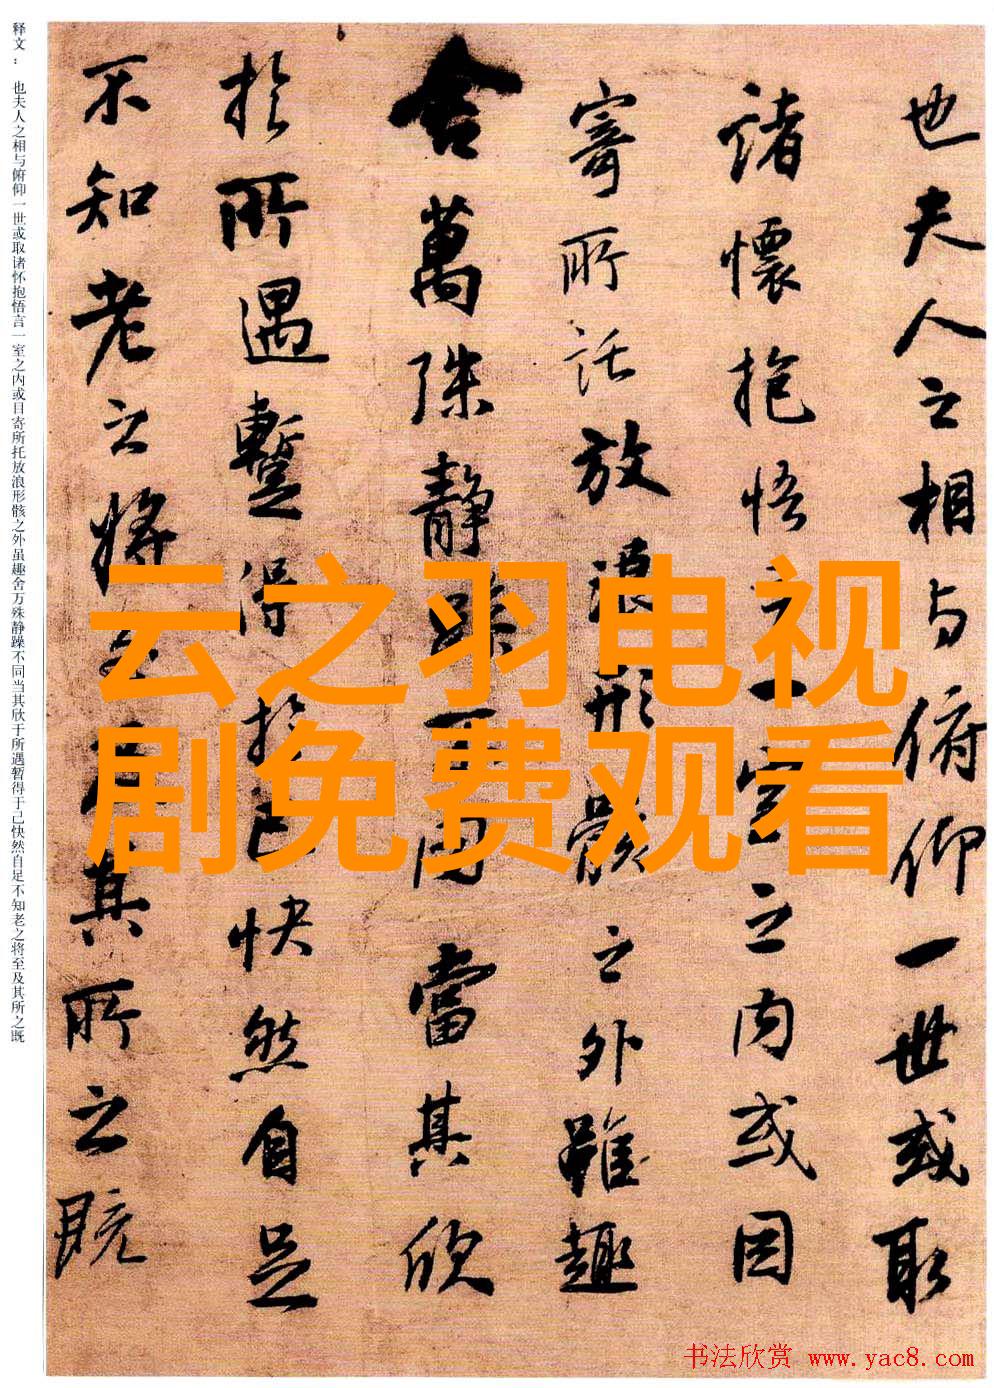 也夫人之相与俯仰一世或取
諸懷抱悟言一室之内或因
寄所託放浪形骸之外雖趣
舍萬殊静躁不同當其欣
於所遇暫得於己快然自足
不知老之將至及其所之既
释文： 也夫人之相与俯仰一世或取诸怀抱悟言一室之内或目寄所托放浪形骸之外虽趣舍万殊静躁不同当其欣于所遇暂得于己快然自足不知老之将至及其所之既
云之羽电视
剧免费观看
书法欣赏 www.yac8.com